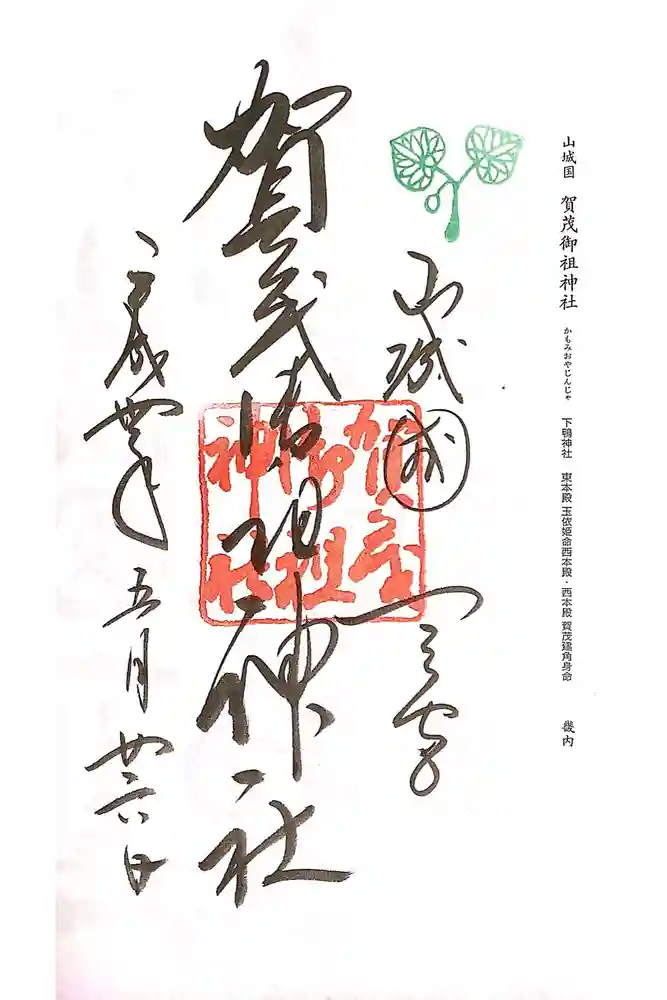 山城国 賀茂御祖神社 かもみおやじんじゃ 下鴨神社 東本殿 玉依姫命西本殿・西本殿 賀茂建角身命 畿内
山城國 一之宮
賀茂御祖神社
賀茂御祖神社
平成廿年五月廿六日